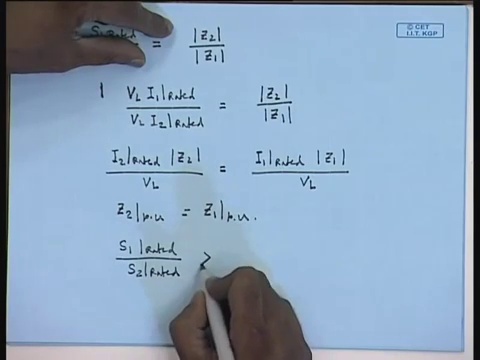 © CET
I.I.T. KGP
S₁|Rated = |Z₂| / |Z₁|
V_L I₁|Rated / V_L I₂|Rated = |Z₂| / |Z₁|
I₂|Rated |Z₂| / V_L = I₁|Rated |Z₁| / V_L
Z₂|p.u = Z₁|p.u.
S₁|Rated / S₂|Rated >